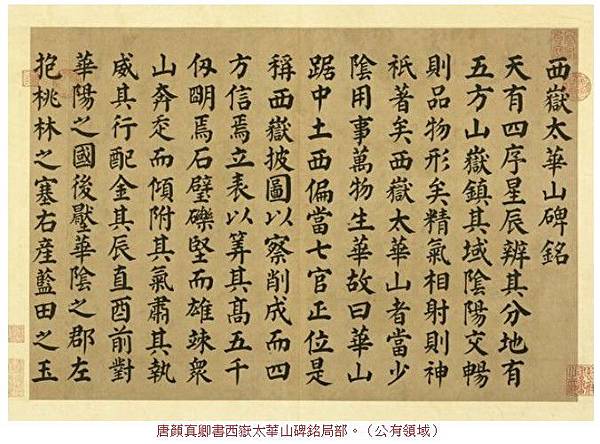 西嶽太華山碑銘
天有四序星辰辨其分地有
五方山嶽鎮其域陰陽交暢
則品物形矣精氣相射則神
祇著矣西嶽太華山者當少
陰用事萬物生華故曰華山
踞中土西偏當七官正位是
稱西嶽披圖以察削成而四
方信焉立表以筭其髙五千
仭明焉石壁礫堅而雄竦衆
山奔走而傾附其氣肅其執
威其行配金其辰直酉前對
華陽之國後壓華陰之郡左
抱桃林之塞右産藍田之玉
唐顏真卿書西嶽太華山碑銘局部。（公有領域）